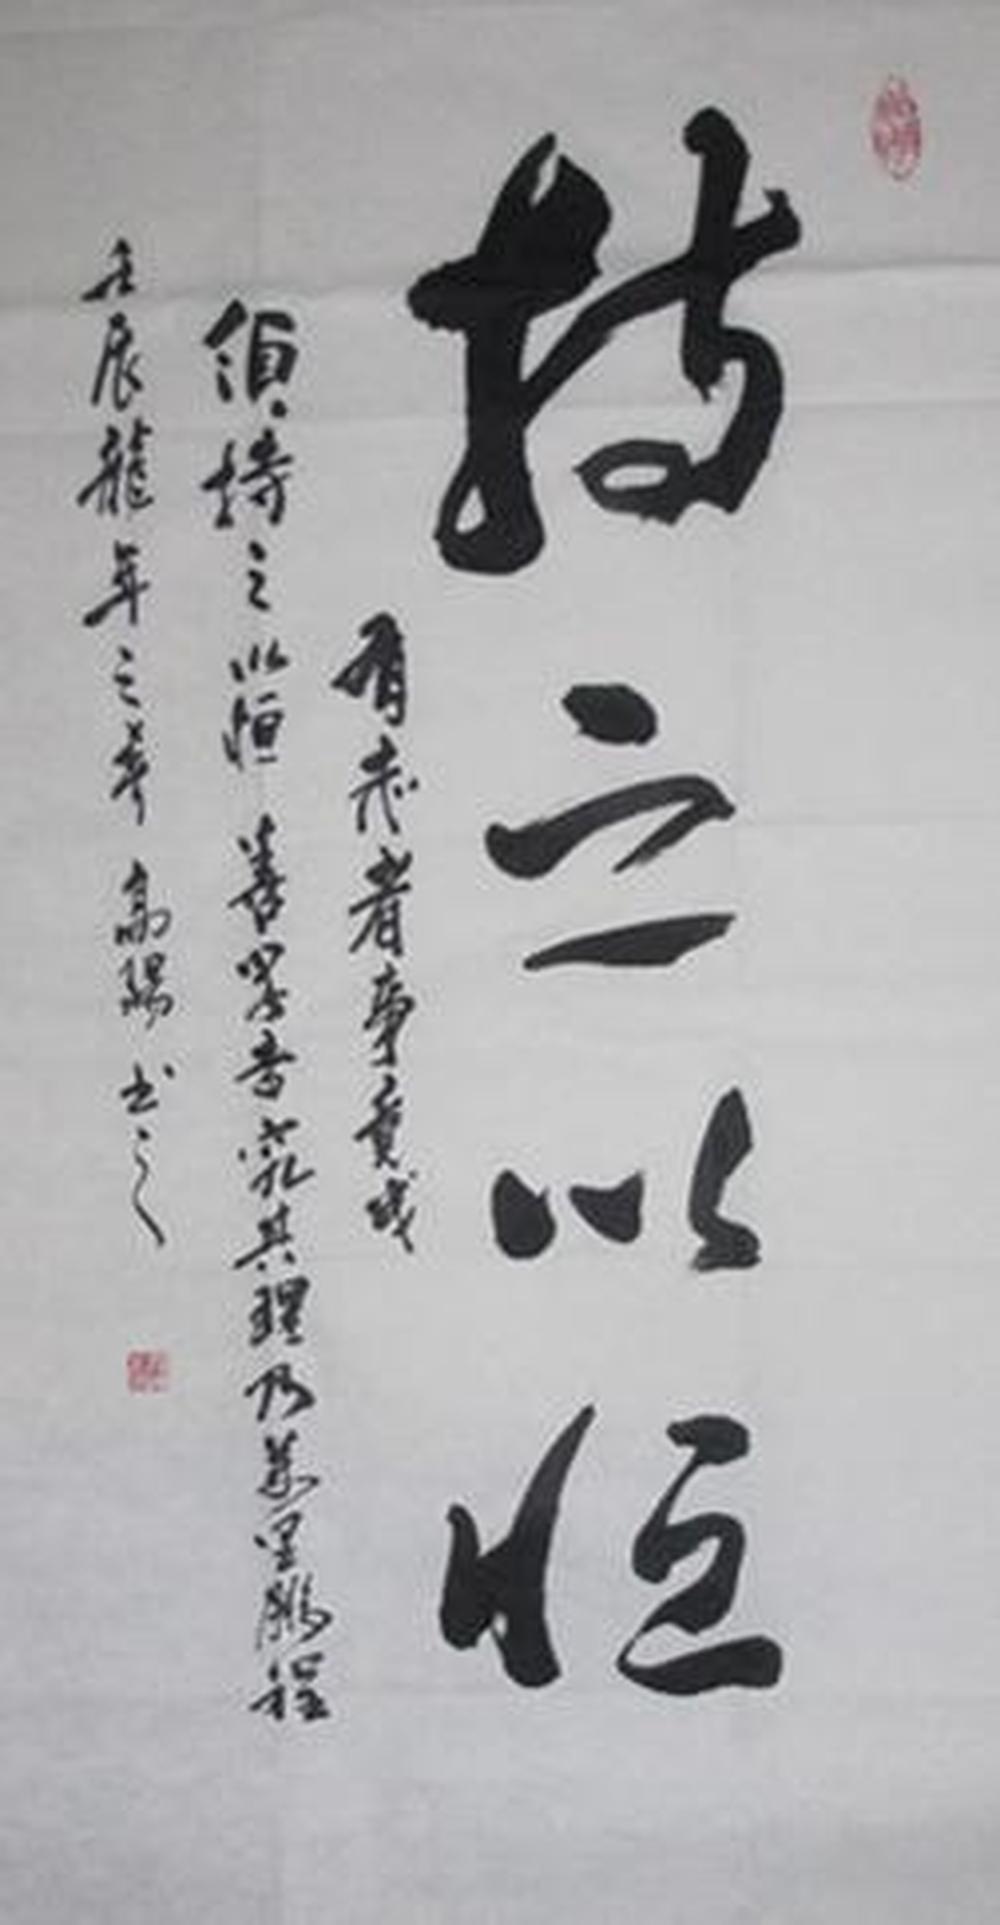 持之以恒
有志者事竟成
須持之以恒善学者究其理乃万里鹏程
壬辰龍年之春高陽书之